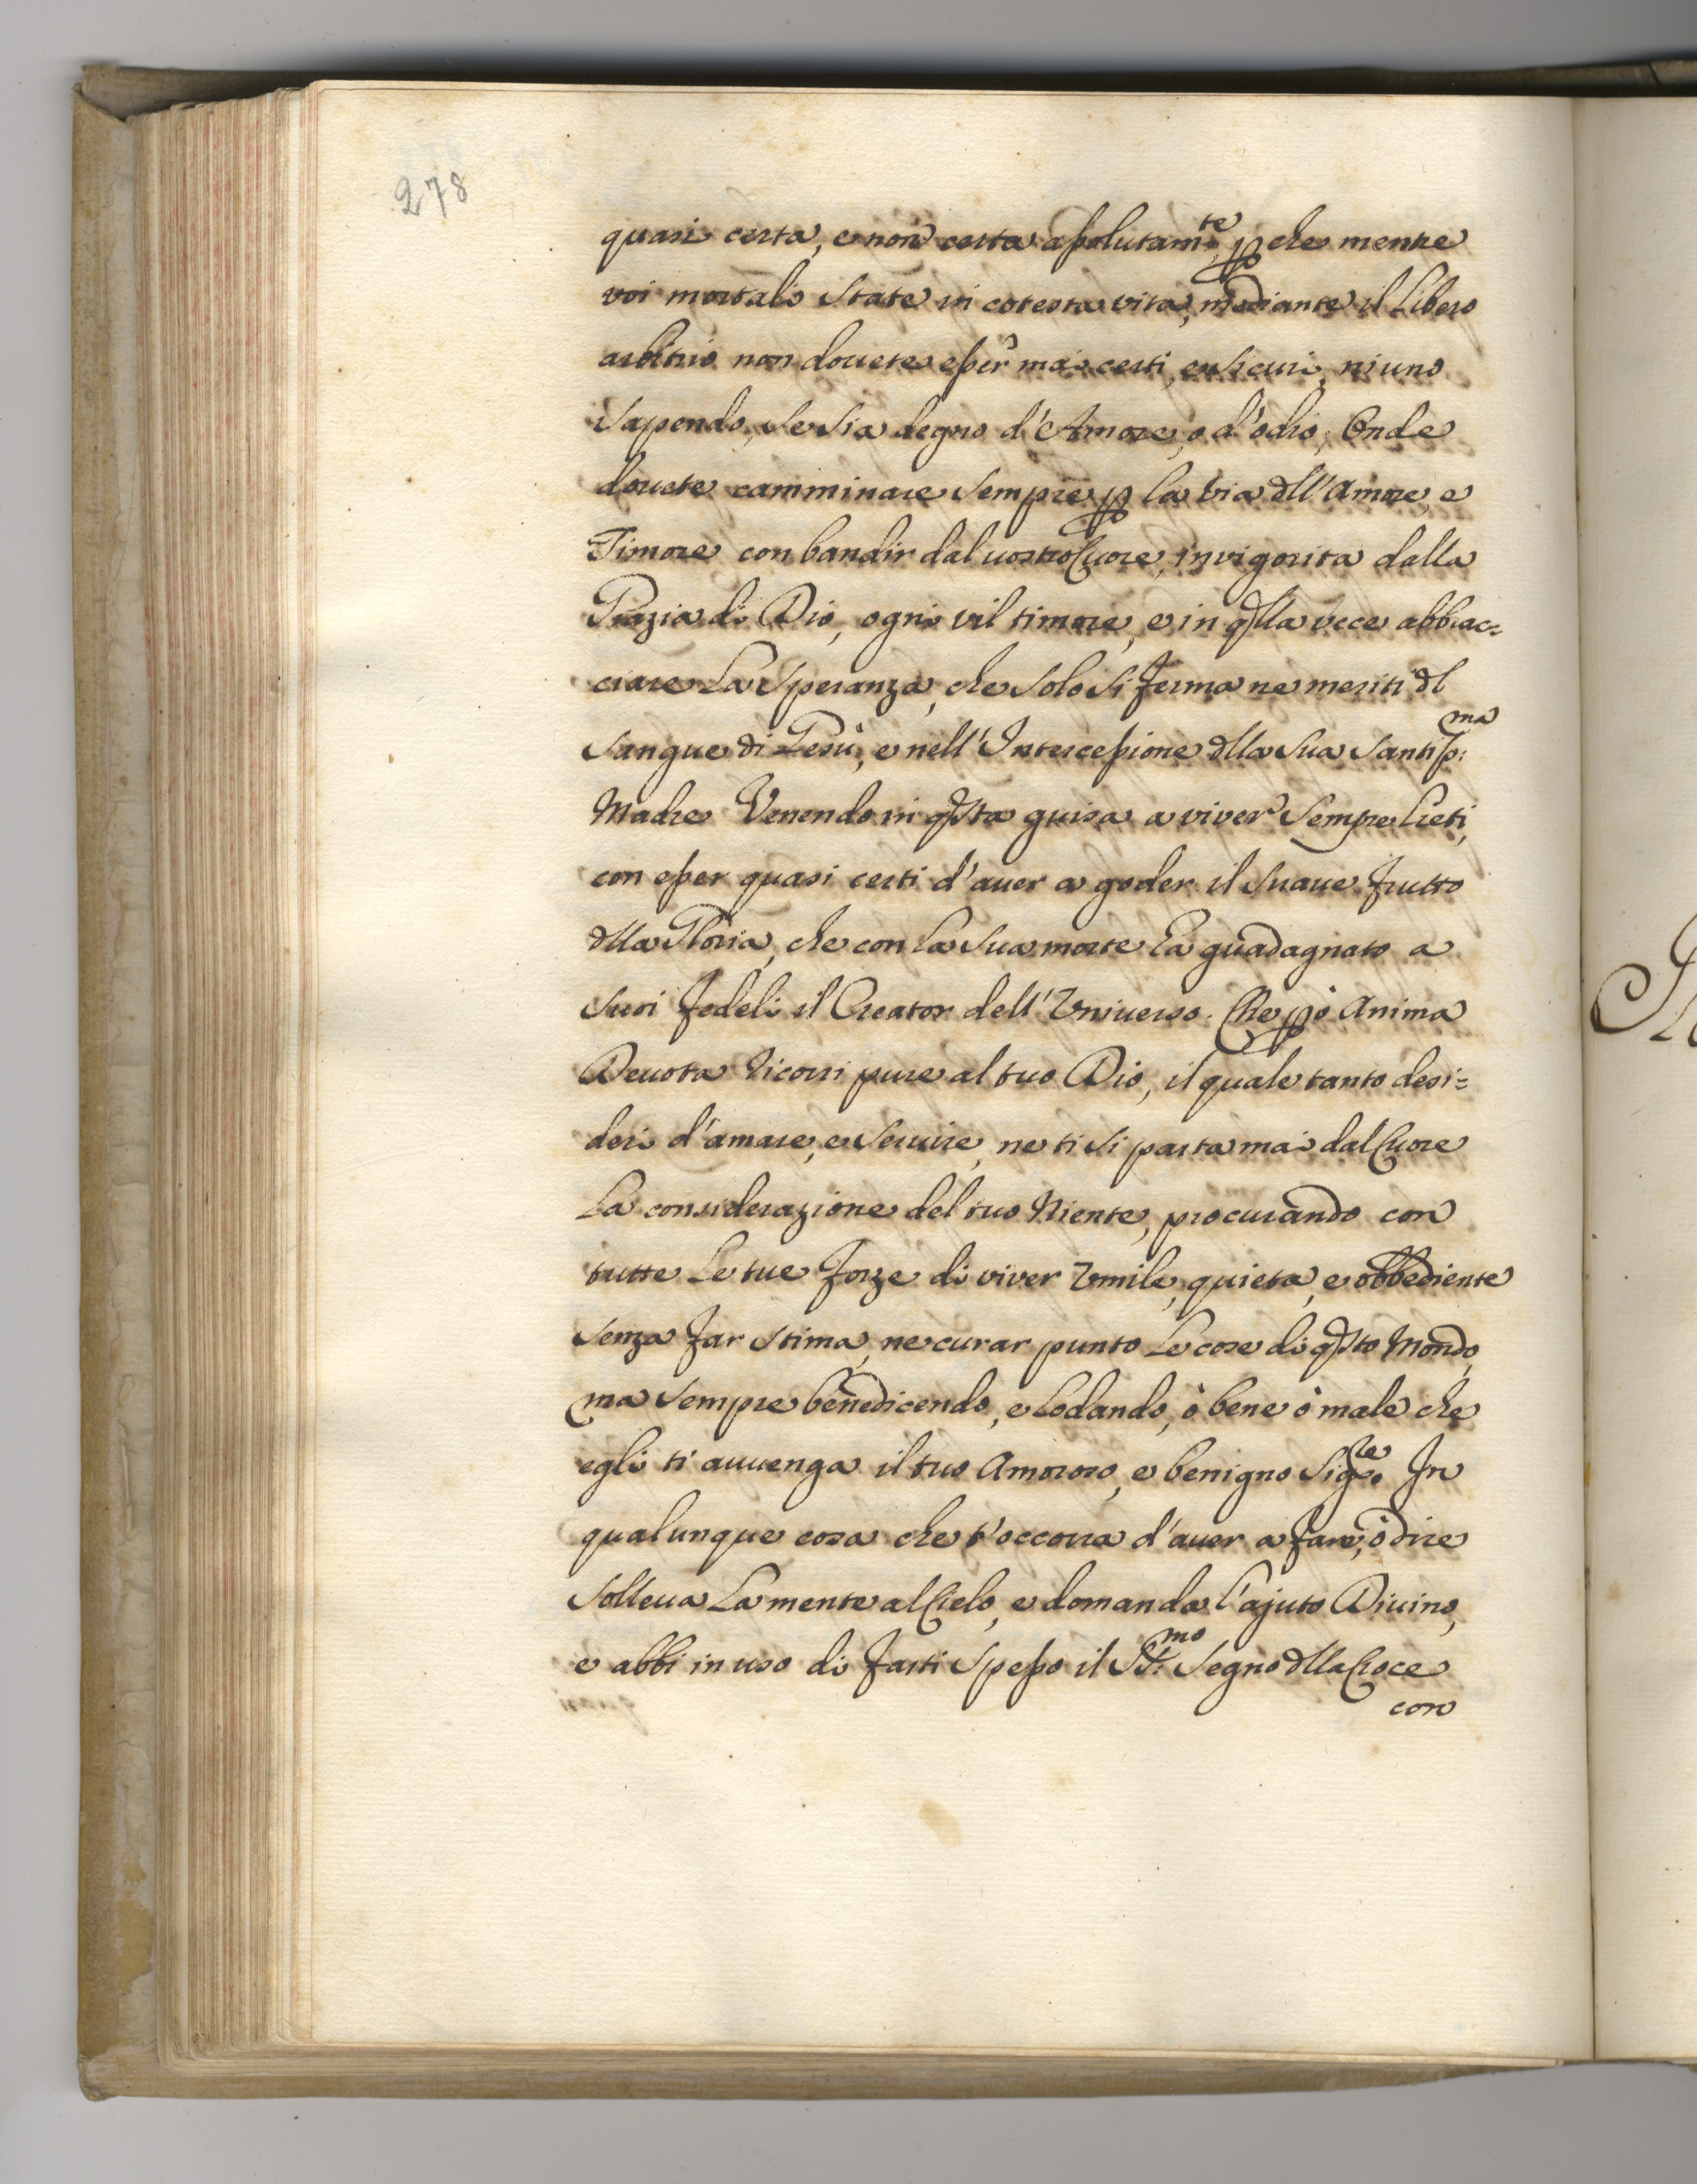 278
quasi certa, e non certa assolutam.te, p che mentre
voi mortali state in cotesta vita, mediante il libero
arbitrio non douete esser mai certi, e sicuri, niuno
sapendo, se sia degno d'Amore, o d'odio; Onde
douete camminare sempre p la via dll'Amore, e
Timore con bandir dal uostro Cuore, invigorita dalla
Grazia di Dio, ogni vil timore, e in qlla vece abbrac=
ciare La Speranza, che solo si ferma ne meriti dl
Sangue di Gesù, e nell'Intercessione dlla Sua Santiss:ma
Madre Venendo in qsta guisa a viver sempre lieti,
con esser quasi certi d'auer a goder il suaue frutto
dlla Gloria, che con la Sua morte ha guadagnato a
suoi fedeli il Creator dell'Vniuerso. Che pò Anima
Deuota ricorri pure al tuo Dio, il quale tanto desi=
deri d'amare, e seruire, ne ti si parta mai dal Cuore
La considerazione del tuo Niente, procurando con
tutte Le tue forze di viver Vmile, quieta, e obbediente
senza far stima, ne curar punto Le cose di qsto Mondo,
ma sempre benedicendo, e Lodando, ò bene ò male che
egli ti auuenga il tuo Amoroso, e benigno Sig.re In
qualunque cosa che t'occorra d'auer a fare, ò dire
solleua La mente al Cielo, e domanda l'ajuto Diuino,
e abbi in uso di farti spesso il SS:mo Segno dlla Croce
con